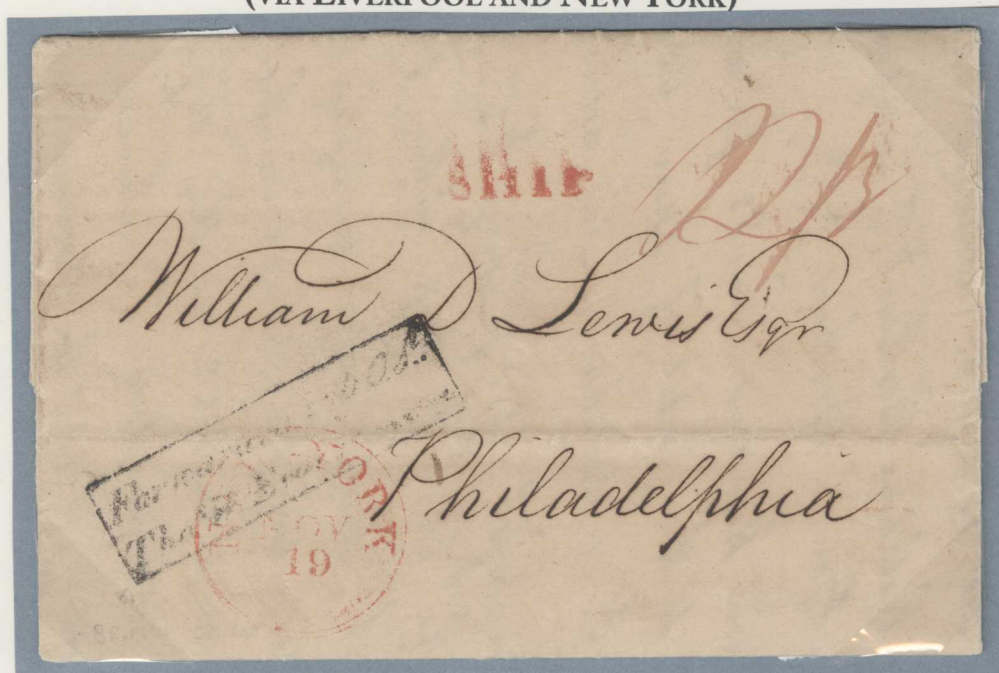 (VIA LIVERPOOL AND NEW YORK)
SHIP
William D Lewis Esqr
Forwarded
Philadelphia
NEW YORK
NOV
19